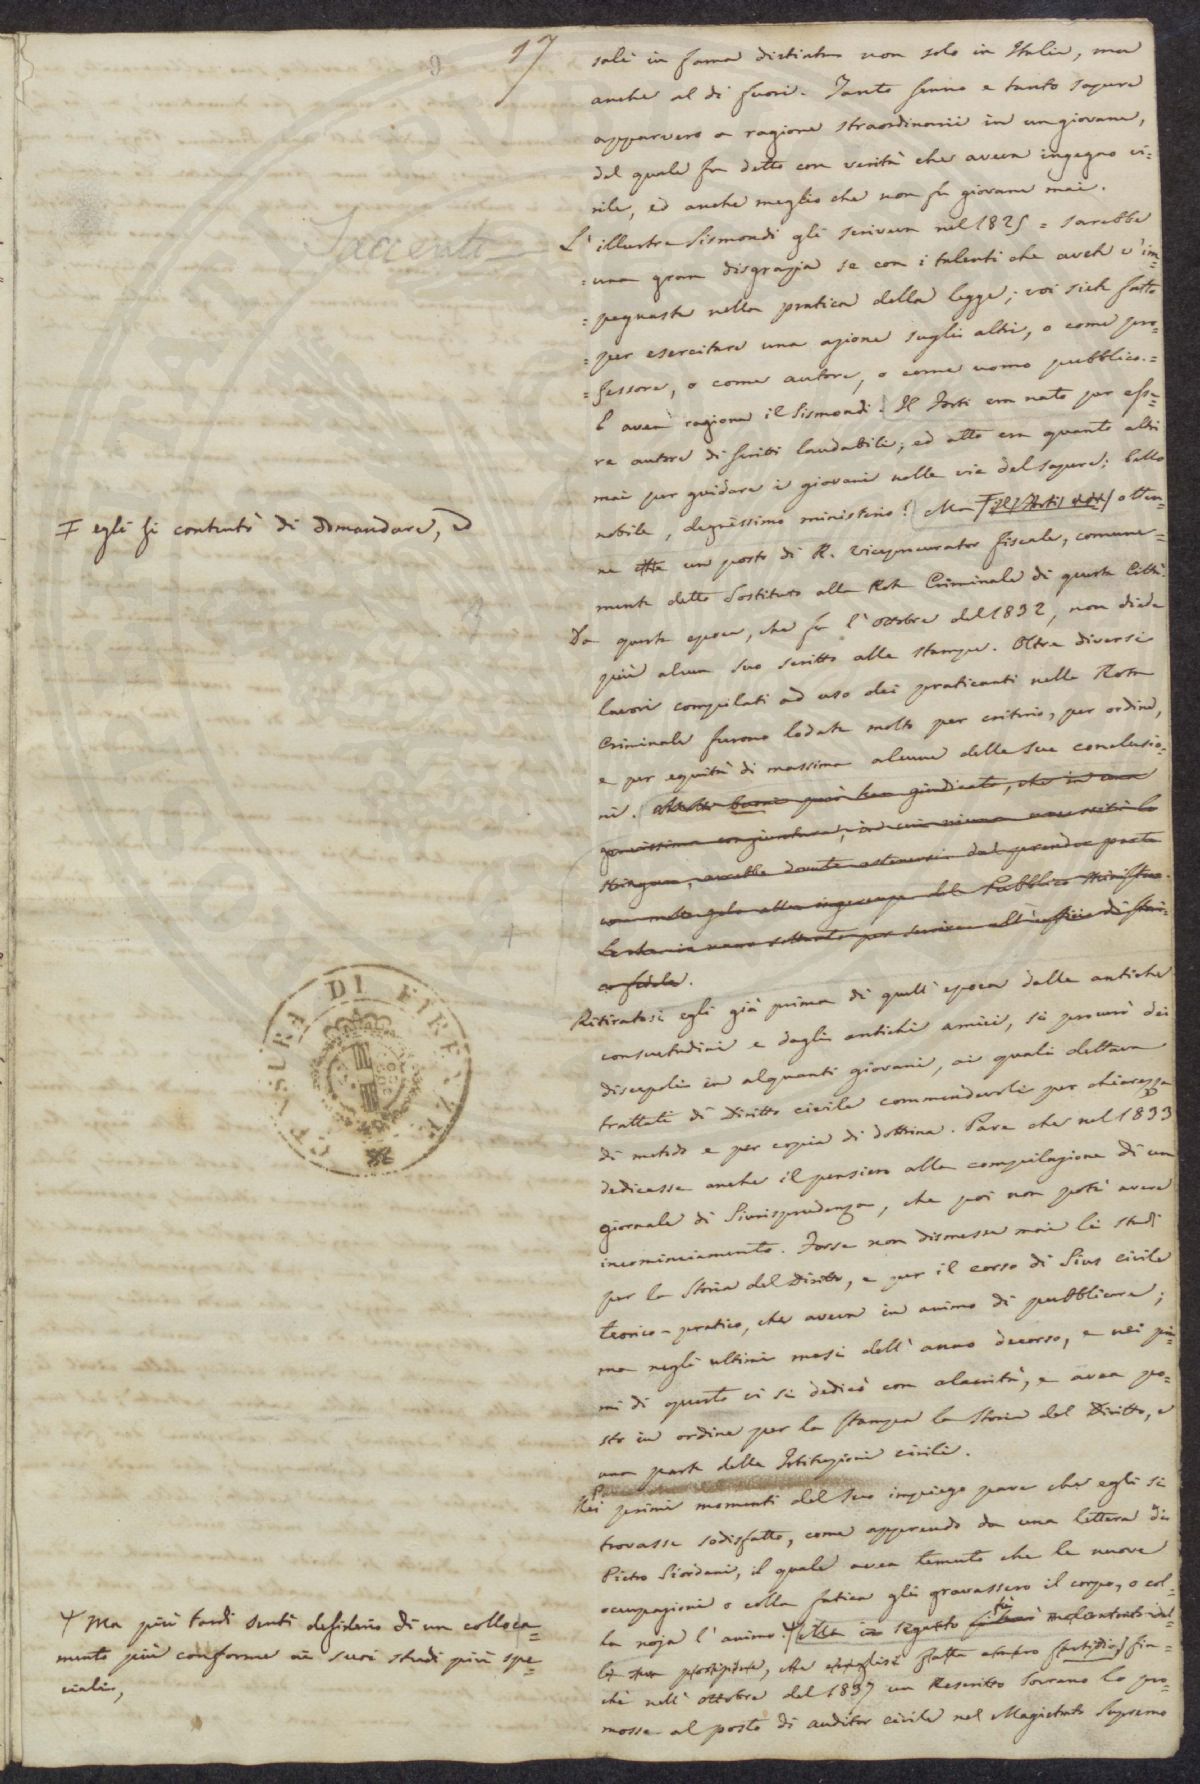 17
salì in fama distinta non solo in Italia, ma
anche al di fuori. Tanto senno e tanto sapere
apparvero a ragione straordinarii in un giovane,
del quale fu detto con verità che aveva ingegno vi=
rile, ed anche meglio che non fu giovane mai.
L'illustre Sismondi gli scriveva nel 1825 = sarebbe
= una gran disgrazia se con i talenti che avete v'im=
= pegnaste nella pratica della legge; voi siete fatto
= per esercitare una azione sugli altri, o come pro=
= fessore, o come autore, o come uomo pubblico. =
E avea ragione il Sismondi. Il Forti era nato per esse=
re autore di scritti laudabili; ed atto era quanto altri
mai per guidare i giovani nelle vie del sapere; bello
nobile, degnissimo ministerio! Ma il Forti otten=
ne un posto di R. Viceprocurator fiscale, comune=
mente detto Sostituto alla Rota Criminale di questa Città.
Ŧ egli si contentò di domandare, ed
Da questa epoca, che fu l'ottobre del 1832, non diede
più alcun suo scritto alle stampe. Oltre diversi
lavori compilati ad uso dei praticanti nella Rota
Criminale furono lodate molto per criterio, per ordine,
e per equità di massima alcune delle sue conclusio=
ni. Molti buoni però han giudicato, che in una
gravissima congiuntura, in cui niuna necessità lo
stringeva, avrebbe dovuto astenersi dal prender parte
con molto zelo alle ingerenze del Pubblico Ministero.
o fedele.
Sacciente
CENSURA DI FIRENZE
Ritiratosi egli già prima di quell'epoca dalle antiche
consuetudini e dagli antichi amici, si procurò dei
discepoli in alquanti giovani, ai quali dettava
trattati di Diritto civile commendevoli per chiarezza
di metodo e per copia di dottrina. Pare che nel 1833
dedicasse anche il pensiero alla compilazione di un
giornale di Giurisprudenza, che poi non potè avere
incominciamento. Forse non dismesse mai li studi
per la Storia del Diritto, e per il corso di Gius civile
teorico-pratico, che aveva in animo di pubblicare;
ma negli ultimi mesi dell'anno decorso, e nei pri=
mi di questo vi si dedicò con alacrità, e avea po=
sto in ordine per la stampa la Storia del Diritto, e
una parte delle Istituzioni civili.
Nei primi momenti del suo impiego pare che egli si
trovasse sodisfatto, come apprendo da una lettera di
Pietro Giordani, il quale avea temuto che le nuove
occupazioni o colla fatica gli gravassero il corpo, o col=
la noja l'animo. Ma in seguito
chè nell'ottobre del 1837 un Rescritto Sovrano lo pro=
mosse al posto di auditor civile nel Magistrato Supremo
Ma più tardi sentì desiderio di un colloca=
mento più conforme ai suoi studi più spe=
ciali,